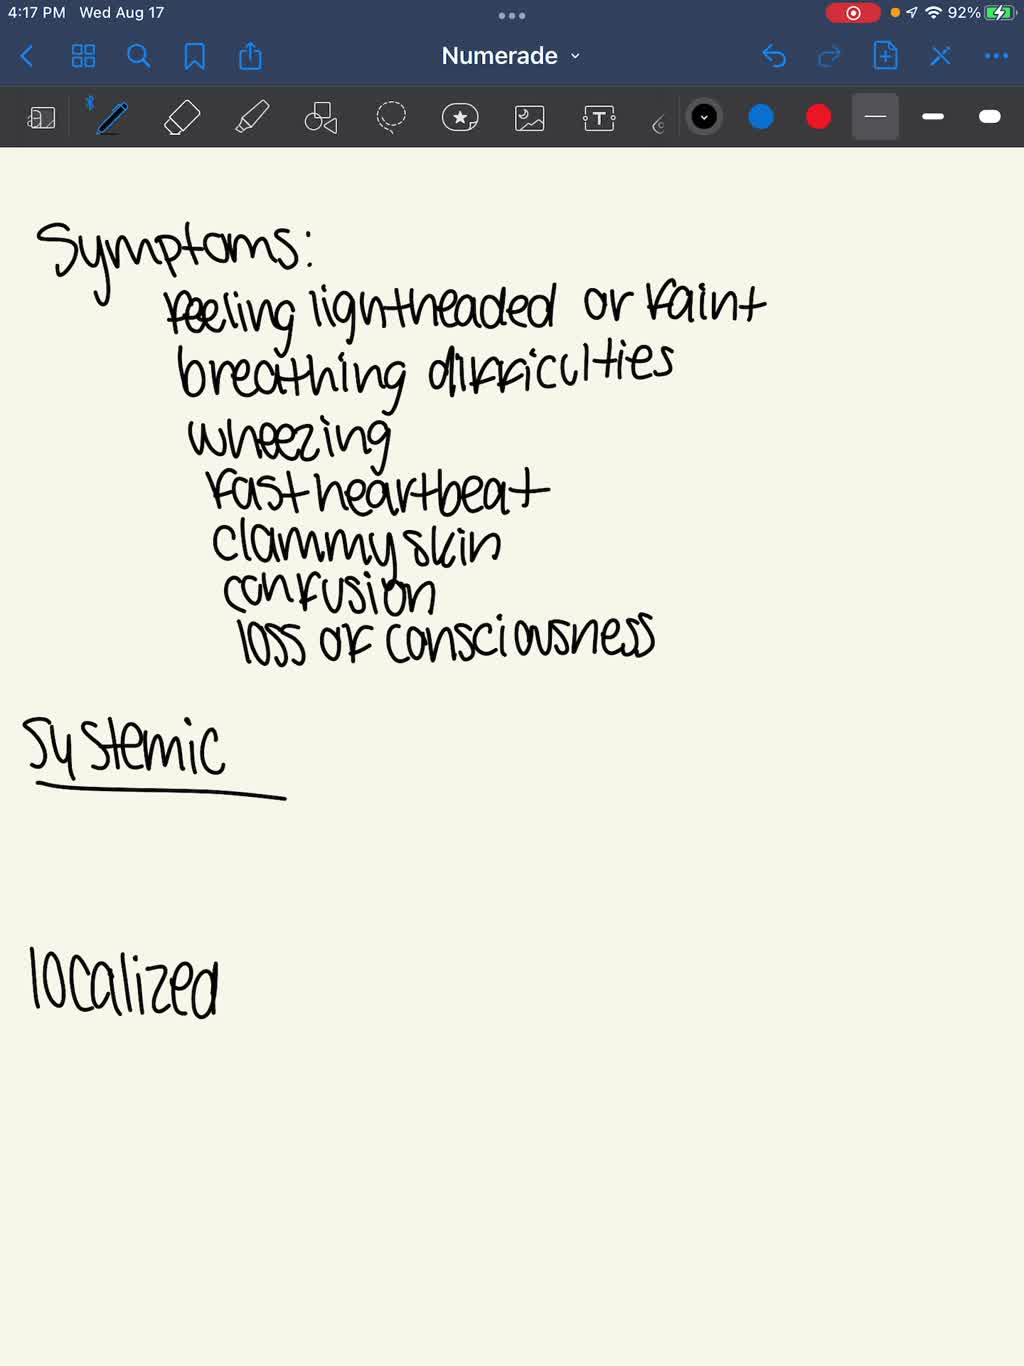 4:17 PM Wed Aug 17 92%
Numerade
T
Symptoms:
feeling lightheaded or faint
breathing difficulties
wheezing
fast heartbeat
clammy skin
confusion
loss of consciousness
systemic
localized